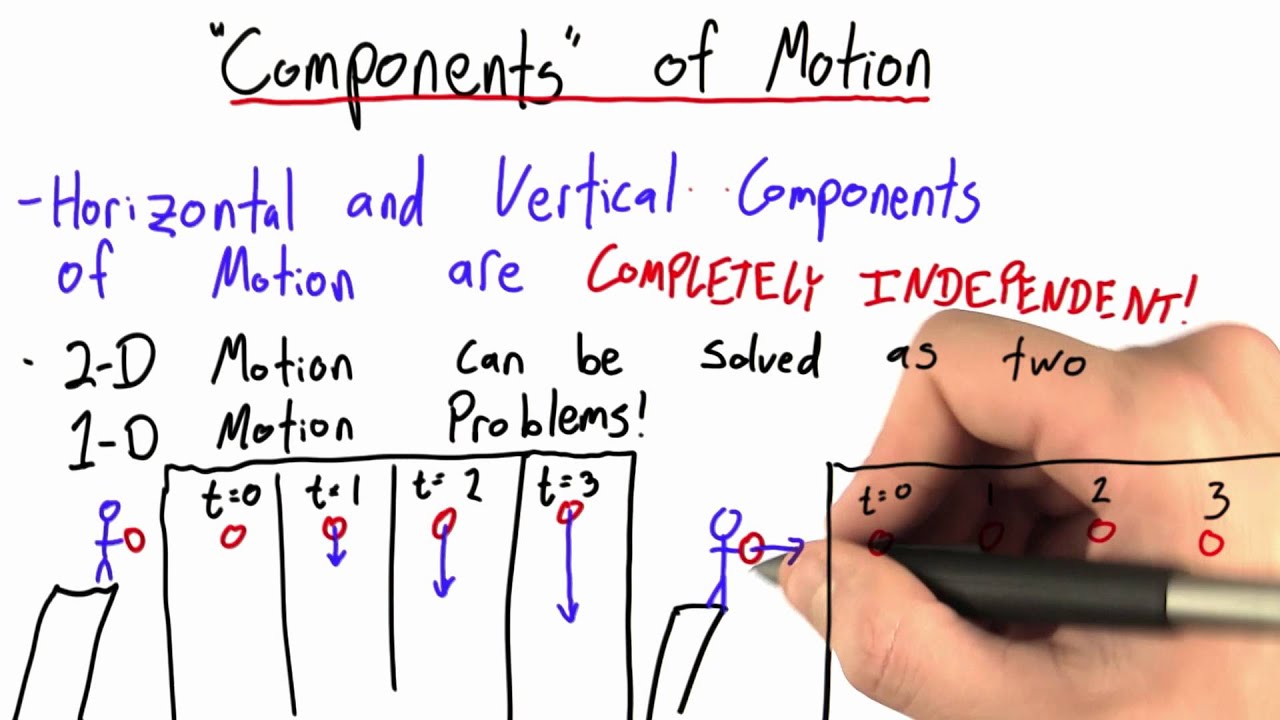 "Components" of Motion
- Horizontal and Vertical Components
of Motion are COMPLETELY INDEPENDENT!
· 2-D Motion can be solved as two
1-D Motion Problems!
t=0 t=1 t=2 t=3
t=0 1 2 3